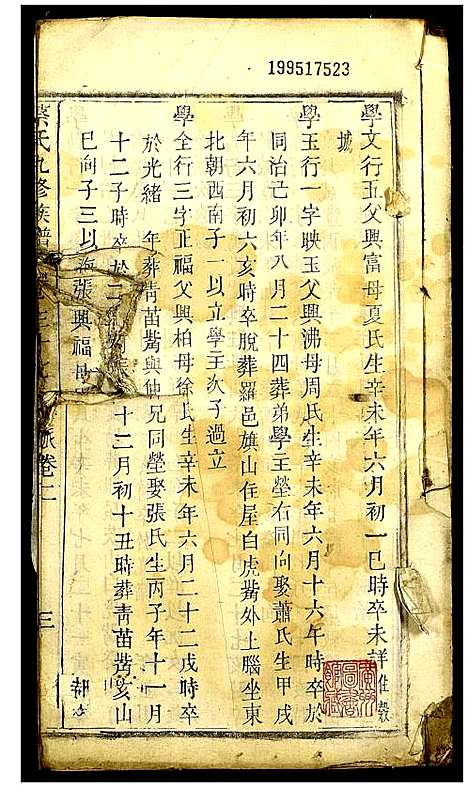 199517523
學文行五父興富母夏氏生辛未年六月初一巳時卒未詳住穀
城
學玉行一字映玉父興沸母周氏生辛未年六月十六午時卒於
同治己卯年八月二十四葬弟學王塋右同向娶蕭氏生甲戌
年六月初六亥時卒脫葬羅邑旗山住屋白虎嘴外土腦坐東
北朝西南子一以立學王次子過立
學全行三字正福父興柏母徐氏生辛未年六月二十二戌時卒
於光緒 年葬青苗嘴與仲兄同塋娶張氏生丙子年十一月
十二子時卒於 十二月初十丑時葬青苗嘴亥山
巳向子三以 張興福母
蔡氏九修族譜 卷二
三